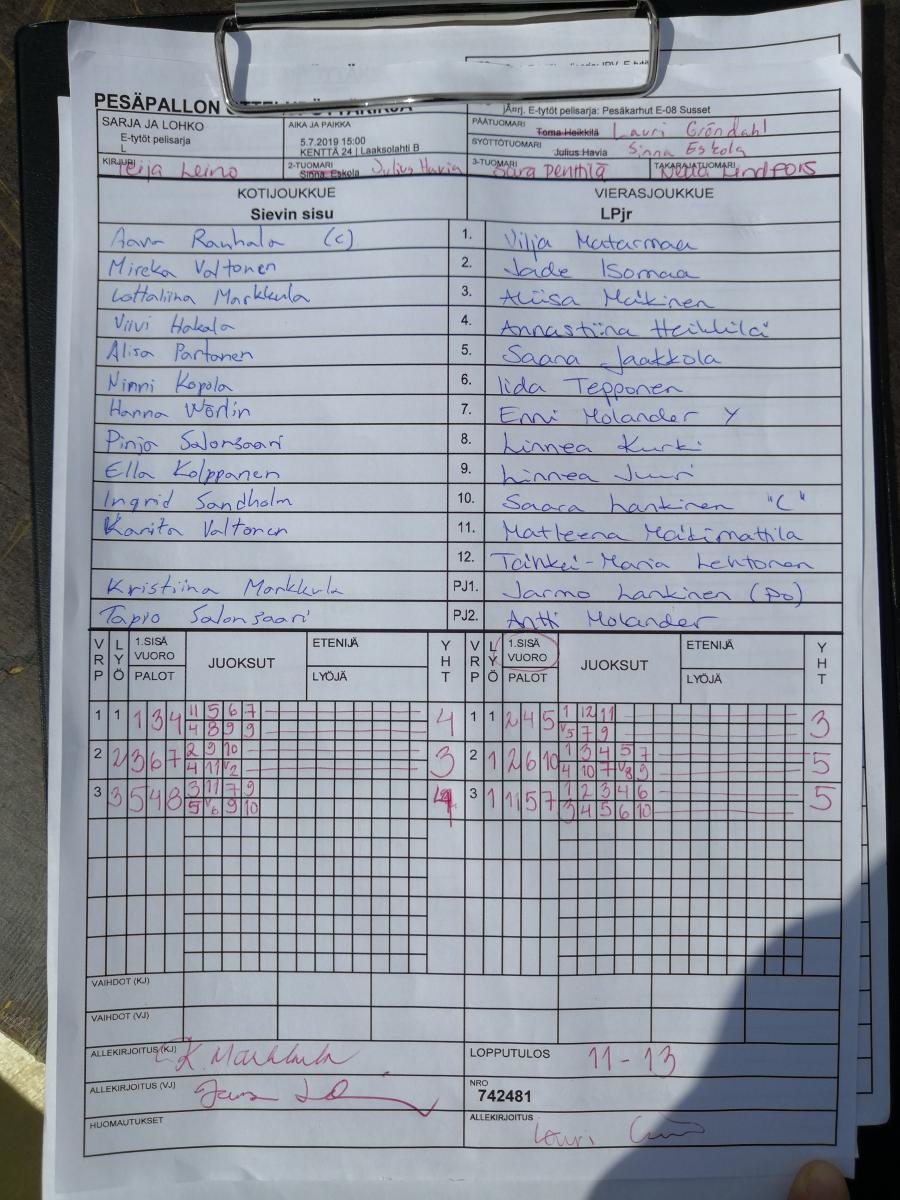 PESÄPALLON
SARJA JA LOHKO
E-tytöt pelisarja
L
AIKA JA PAIKKA
5.7.2019 15:00
KENTTÄ 24 | Laaksolahti B
Järj. E-tytöt pelisarja: Pesäkarhut E-08 Susset
PÄÄTUOMARI Toma Heikkilä Lauri Gröndahl
SYÖTTÖTUOMARI Julius Havia Sinna Eskola
KIRJURI Teija Leino
2-TUOMARI Sinna Eskola Julius Havia
3-TUOMARI Sara Penttilä
TAKARAJATUOMARI
KOTIJOUKKUE VIERASJOUKKUE
Sievin sisu LPjr
Aava Rauhala (c) 1. Vilja Matarmaa
Mireka Valtonen 2. Jade Isomaa
Lottaliina Markkula 3. Aliisa Mäkinen
Viivi Hakala 4. Annastiina Heikkilä
Alisa Partanen 5. Saana Jaakkola
Ninni Kopola 6. Iida Tepponen
Hanna Wörlin 7. Enni Molander Y
Pinja Salonsaari 8. Linnea Kurki
Ella Kolppanen 9. Linnea Juuri
Ingrid Sandholm 10. Saara Lankinen "C"
Karita Valtonen 11. Matleena Mäkimattila
12. Taihkei-Maria Lehtonen
Kristiina Markkula PJ1. Jarmo Lankinen (po)
Tapio Salonsaari PJ2. Antti Molander
VRP LYÖ 1.SISÄ VUORO PALOT JUOKSUT ETENIJÄ LYÖJÄ YHT VRP LYÖ 1.SISÄ VUORO PALOT JUOKSUT ETENIJÄ LYÖJÄ YHT
1 1 1 3 4 11 5 6 7 4 1 1 2 4 5 1 12 11 3
4 8 9 9 V5 7 9
2 2 3 6 7 2 9 10 3 2 1 2 6 10 1 3 4 5 7 5
4 11 V2 4 10 7 V8 9
3 3 5 4 8 3 11 7 9 4 3 1 11 5 7 1 2 3 4 6 5
5 V6 9 10 3 4 5 6 10
VAIHDOT (KJ)
VAIHDOT (VJ)
ALLEKIRJOITUS (KJ) K. Markkula LOPPUTULOS 11-13
ALLEKIRJOITUS (VJ) NRO
742481
HUOMAUTUKSET ALLEKIRJOITUS Lauri